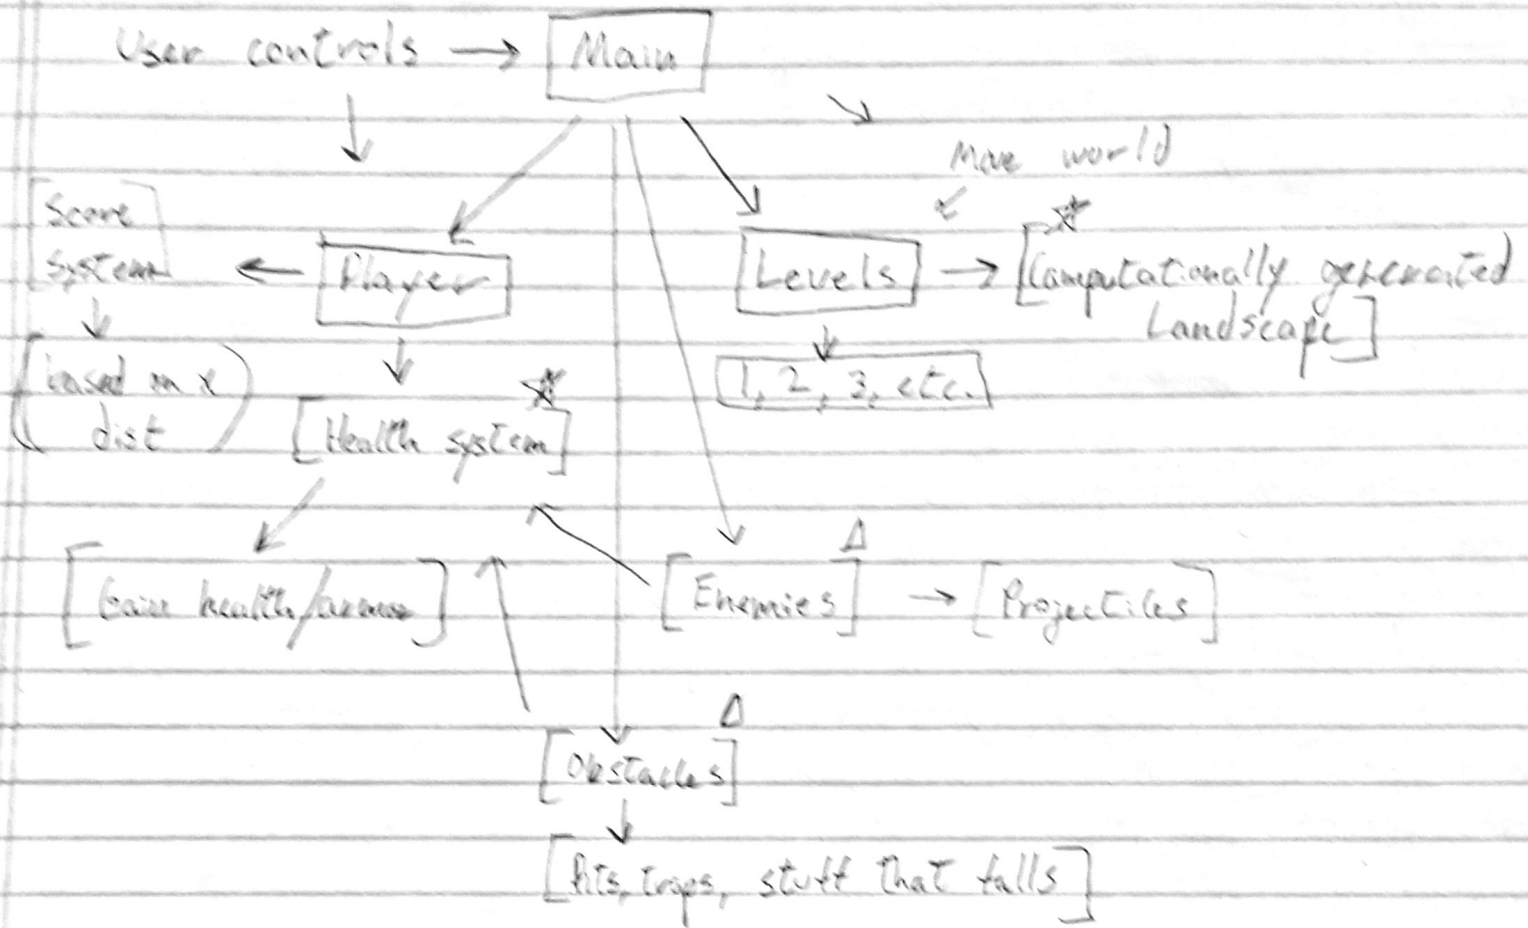 User controls → Main
Move world
Score
system
Player
Levels → Computationally generated
Landscape
based on x
dist
1, 2, 3, etc.
Health system
Gain health/armor
Enemies → Projectiles
Obstacles
Pits, traps, stuff that falls